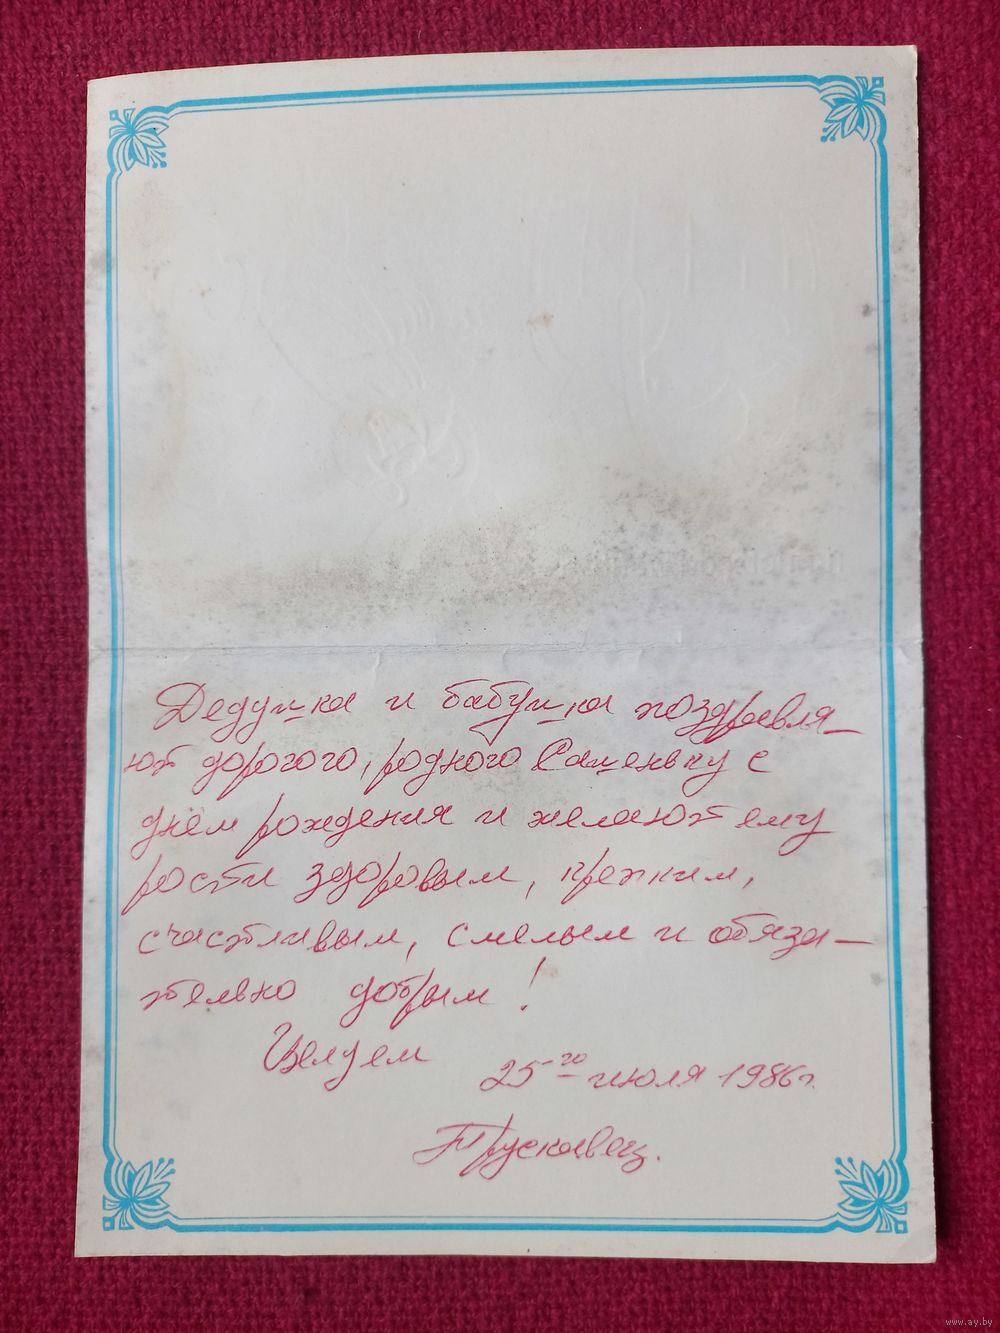 Дедушка и бабушка поздравля-
ют дорогого, родного Сашеньку с
днём рождения и желают ему
рости здоровым, крепким,
счастливым, смелым и обяза-
тельно добрым!
Целуем
25го июля 1986г.
Трускавец.
www.ay.by